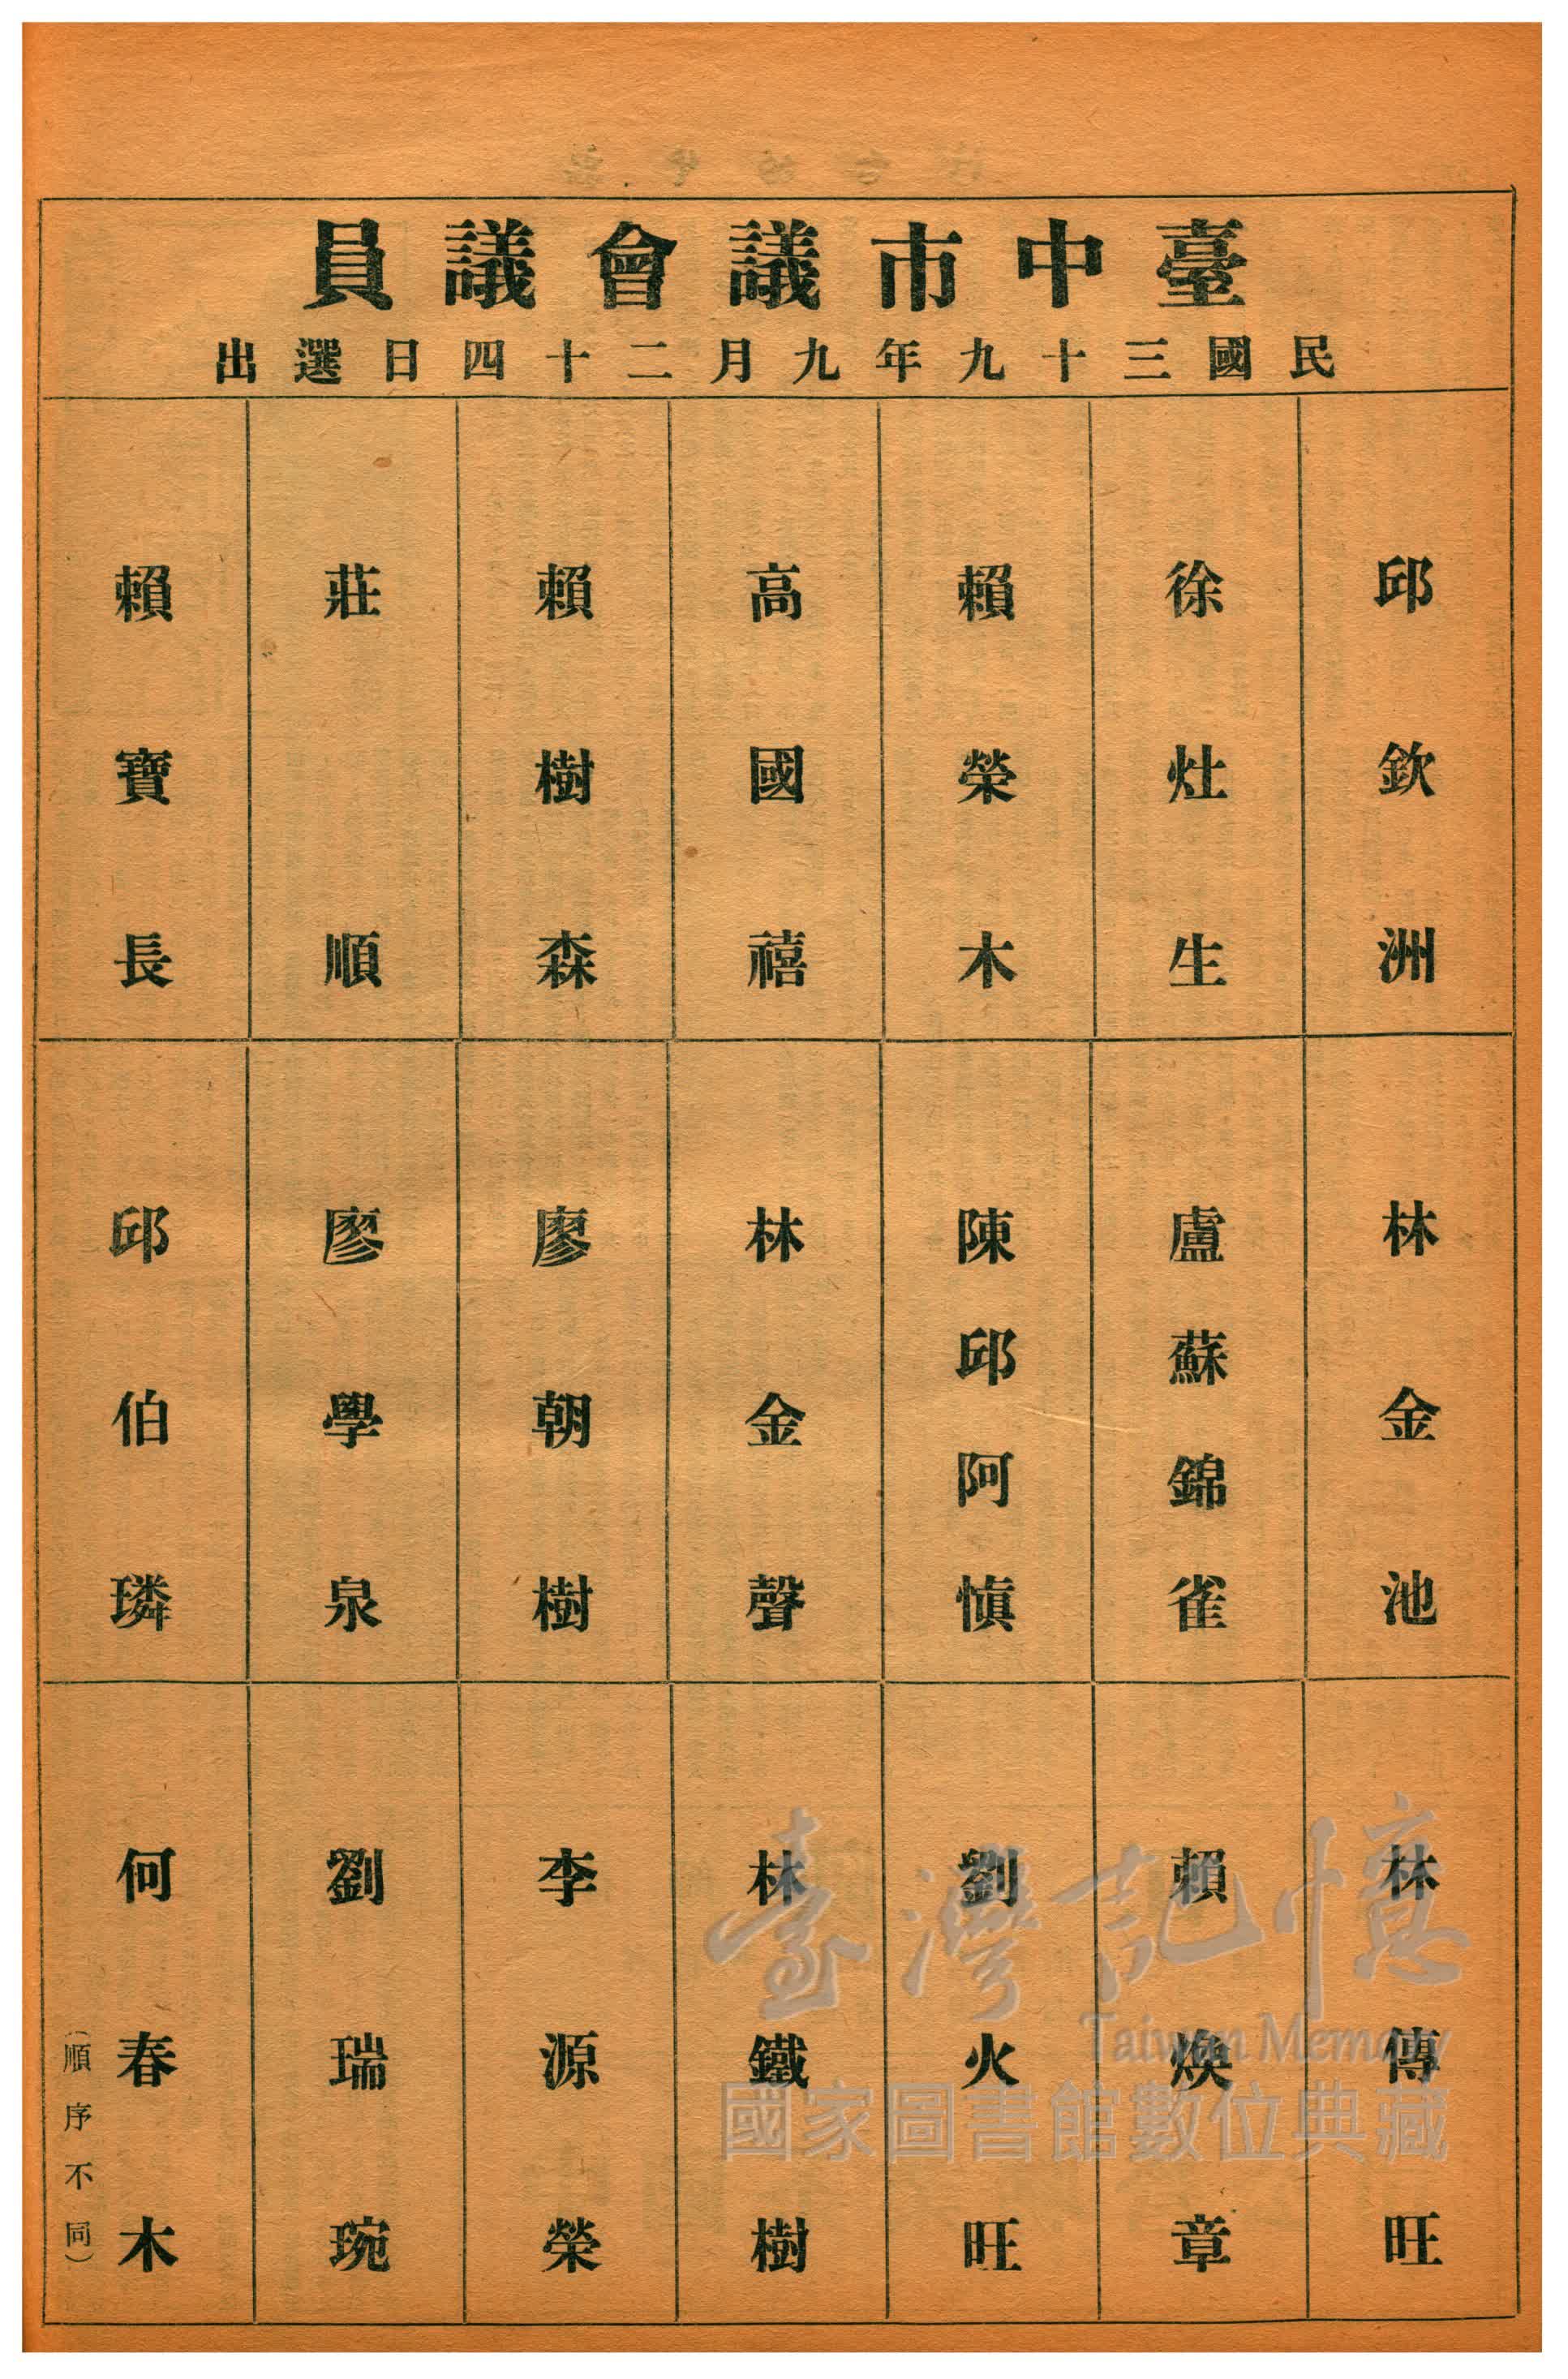 臺中市議會議員
民國三十九年九月二十四日選出
邱欽洲
徐灶生
賴榮木
高國禧
賴樹森
莊順
賴寶長
林金池
盧蘇錦雀
陳邱阿慎
林金聲
廖朝樹
廖學泉
邱伯璘
林傳旺
賴煥章
劉火旺
林鐵樹
李源榮
劉瑞琬
何春木
(順序不同)
臺灣記憶
Taiwan Memory
國家圖書館數位典藏